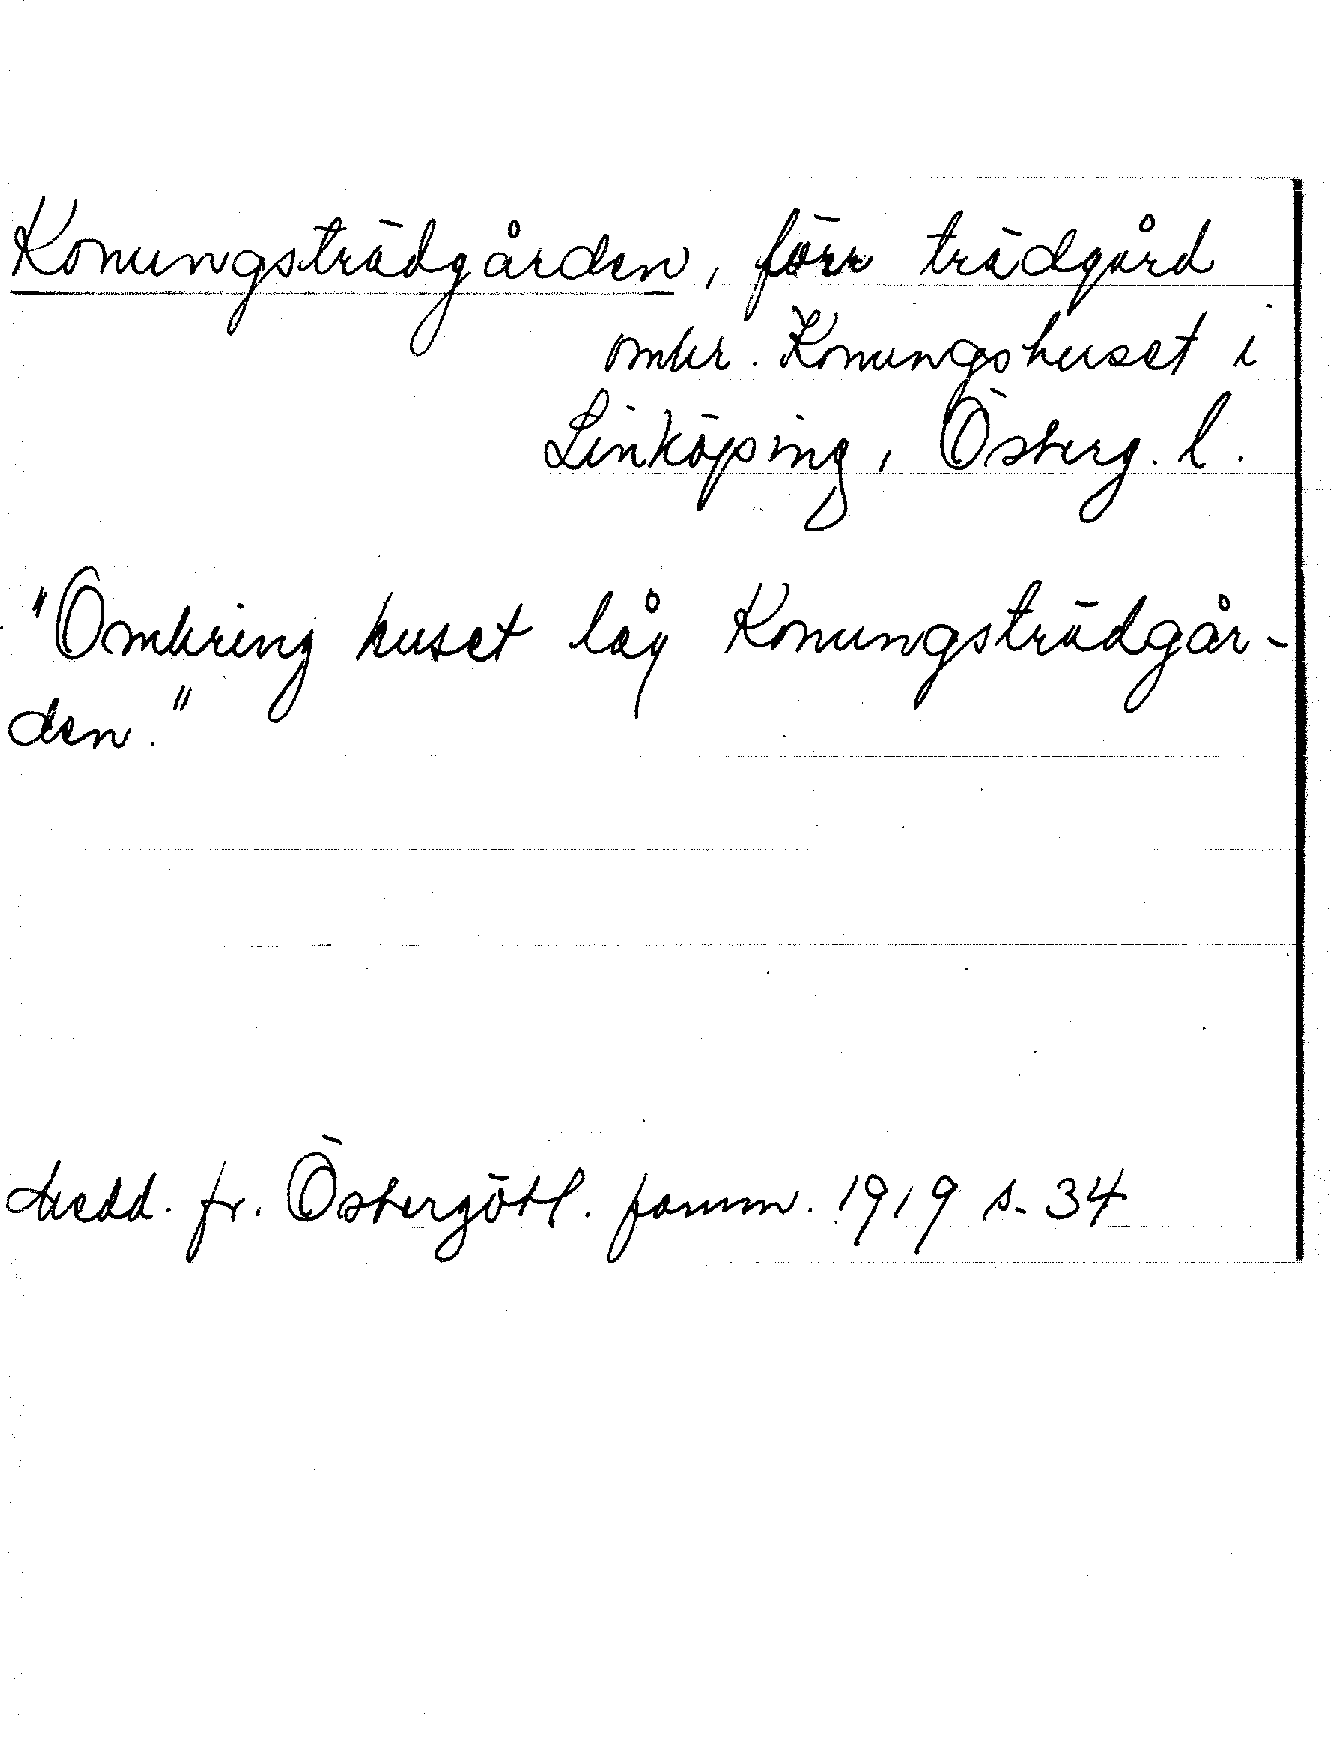 Konungsträdgården, förr trädgård
omkr. Konungshuset i
Linköping, Österg. l.
"Omkring huset låg Konungsträdgår-
den."
Medd. fr. Östergötl. fornm. 1919 s. 34